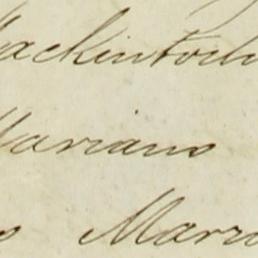 Mackintosh
Mariano
Marzo